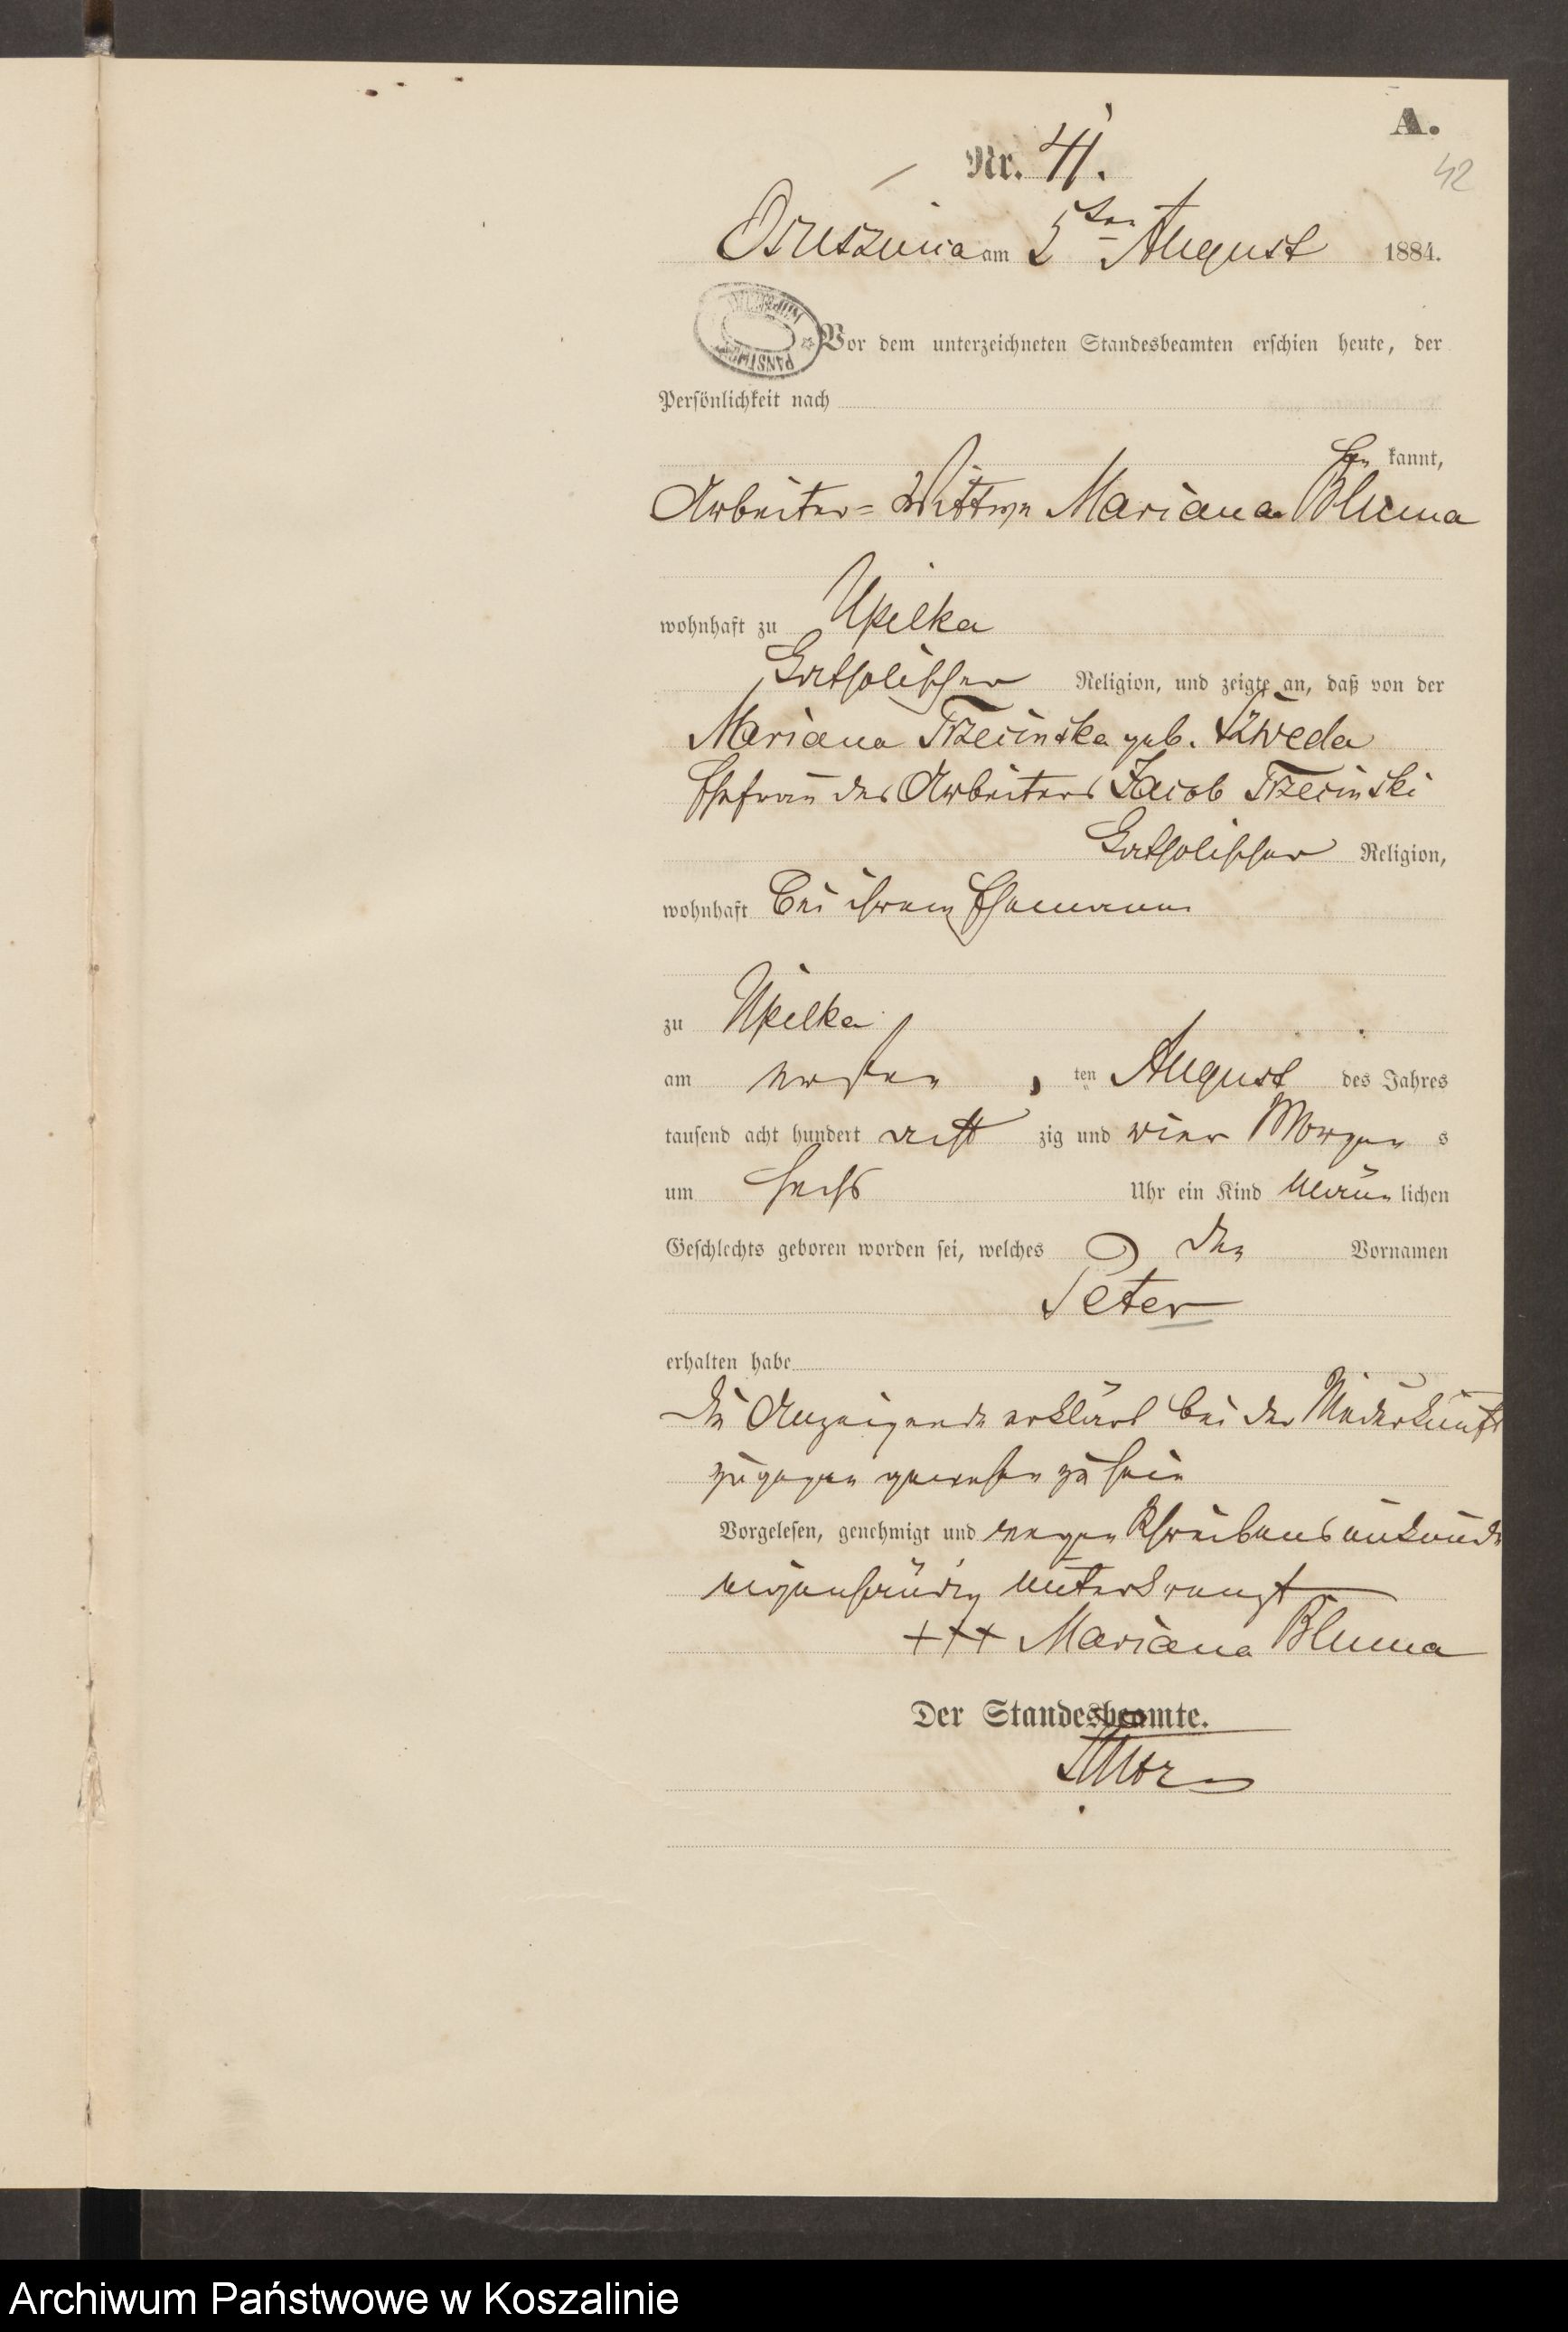 A.
Nr. 41.
42
Osusznica am 5ten August 1884.
Vor dem unterzeichneten Standesbeamten erschien heute, der
Persönlichkeit nach
be kannt,
Arbeiter= Wittwe Mariana Bluma
wohnhaft zu Upilka
katholischer Religion, und zeigte an, daß von der
Mariana Trzecinska geb. Szweda
Ehefrau des Arbeiters Jacob Trzecinski
katholischer Religion,
wohnhaft bei ihrem Ehemanne
zu Upilka
am ersten ten August des Jahres
tausend acht hundert acht zig und vier Morgen s
um sechs Uhr ein Kind männ lichen
Geschlechts geboren worden sei, welches den Vornamen
Peter
erhalten habe
Die Anzeigende erklärt bei der Niederkunft
zugegen gewesen zu sein
Vorgelesen, genehmigt und wegen Schreibensunkunde
eigenhändig unterkreuzt
+++ Mariana Bluma
Der Standesbeamte.
Archiwum Państwowe w Koszalinie